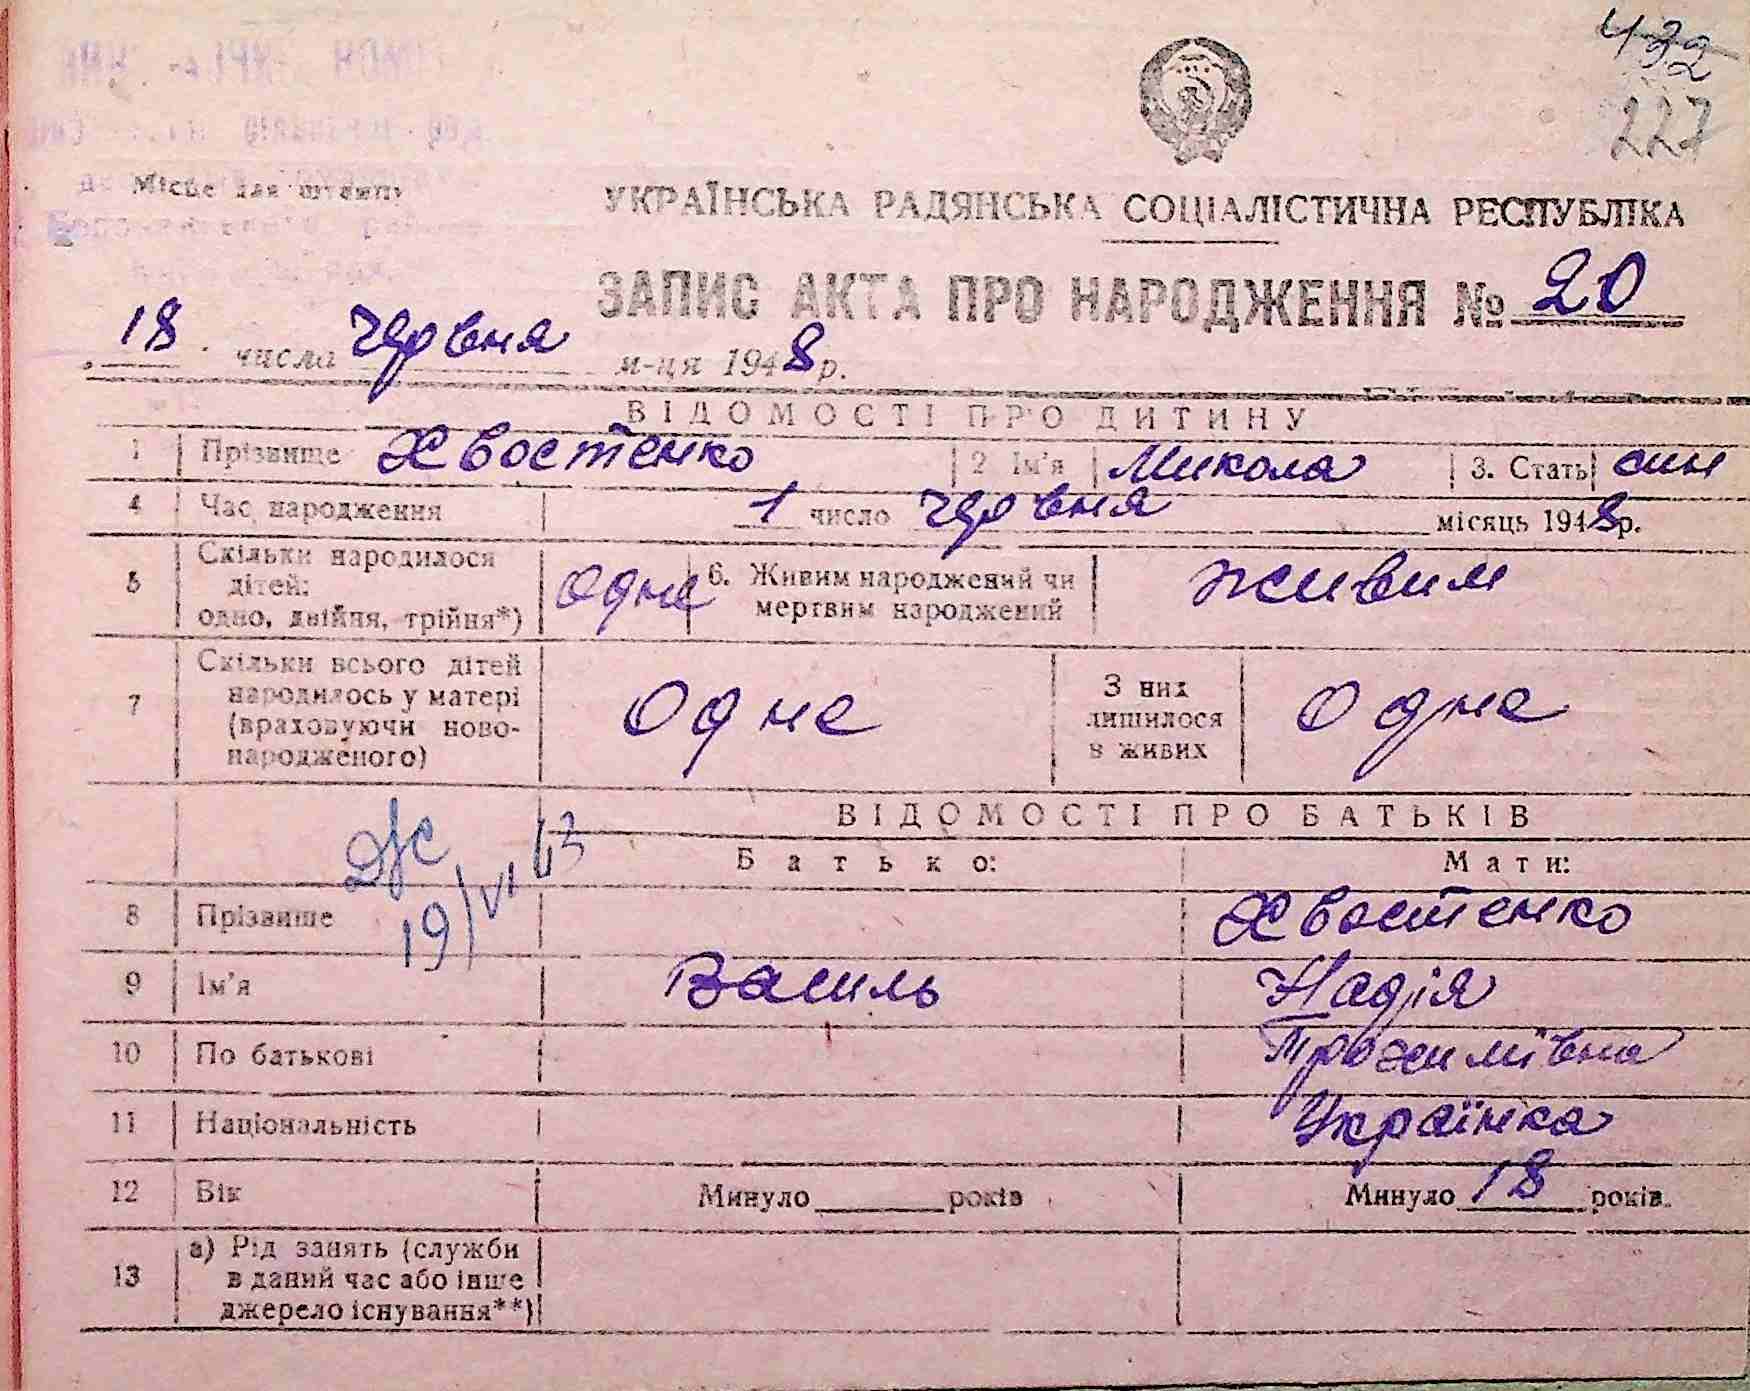 432
227
Місце для штампу
УКРАЇНСЬКА РАДЯНСЬКА СОЦІАЛІСТИЧНА РЕСПУБЛІКА
ЗАПИС АКТА ПРО НАРОДЖЕННЯ № 20
18 числа червня м-ця 1948 р.
ВІДОМОСТІ ПРО ДИТИНУ
1 Прізвище Хвостенко 2 Ім'я Микола 3. Стать син
4 Час народження 1 число червня місяць 1948 р.
5 Скільки народилося дітей: одно, двійня, трійня*) одне 6. Живим народжений чи мертвим народжений живим
7 Скільки всього дітей народилось у матері (враховуючи новонародженого) Одне З них лишилося в живих Одне
ВІДОМОСТІ ПРО БАТЬКІВ
Батько: Мати:
19/VI 63
8 Прізвище Хвостенко
9 Ім'я Василь Надія
10 По батькові Трохимівна
11 Національність Українка
12 Вік Минуло років Минуло 18 років.
13 а) Рід занять (служби в даний час або інше джерело існування**)